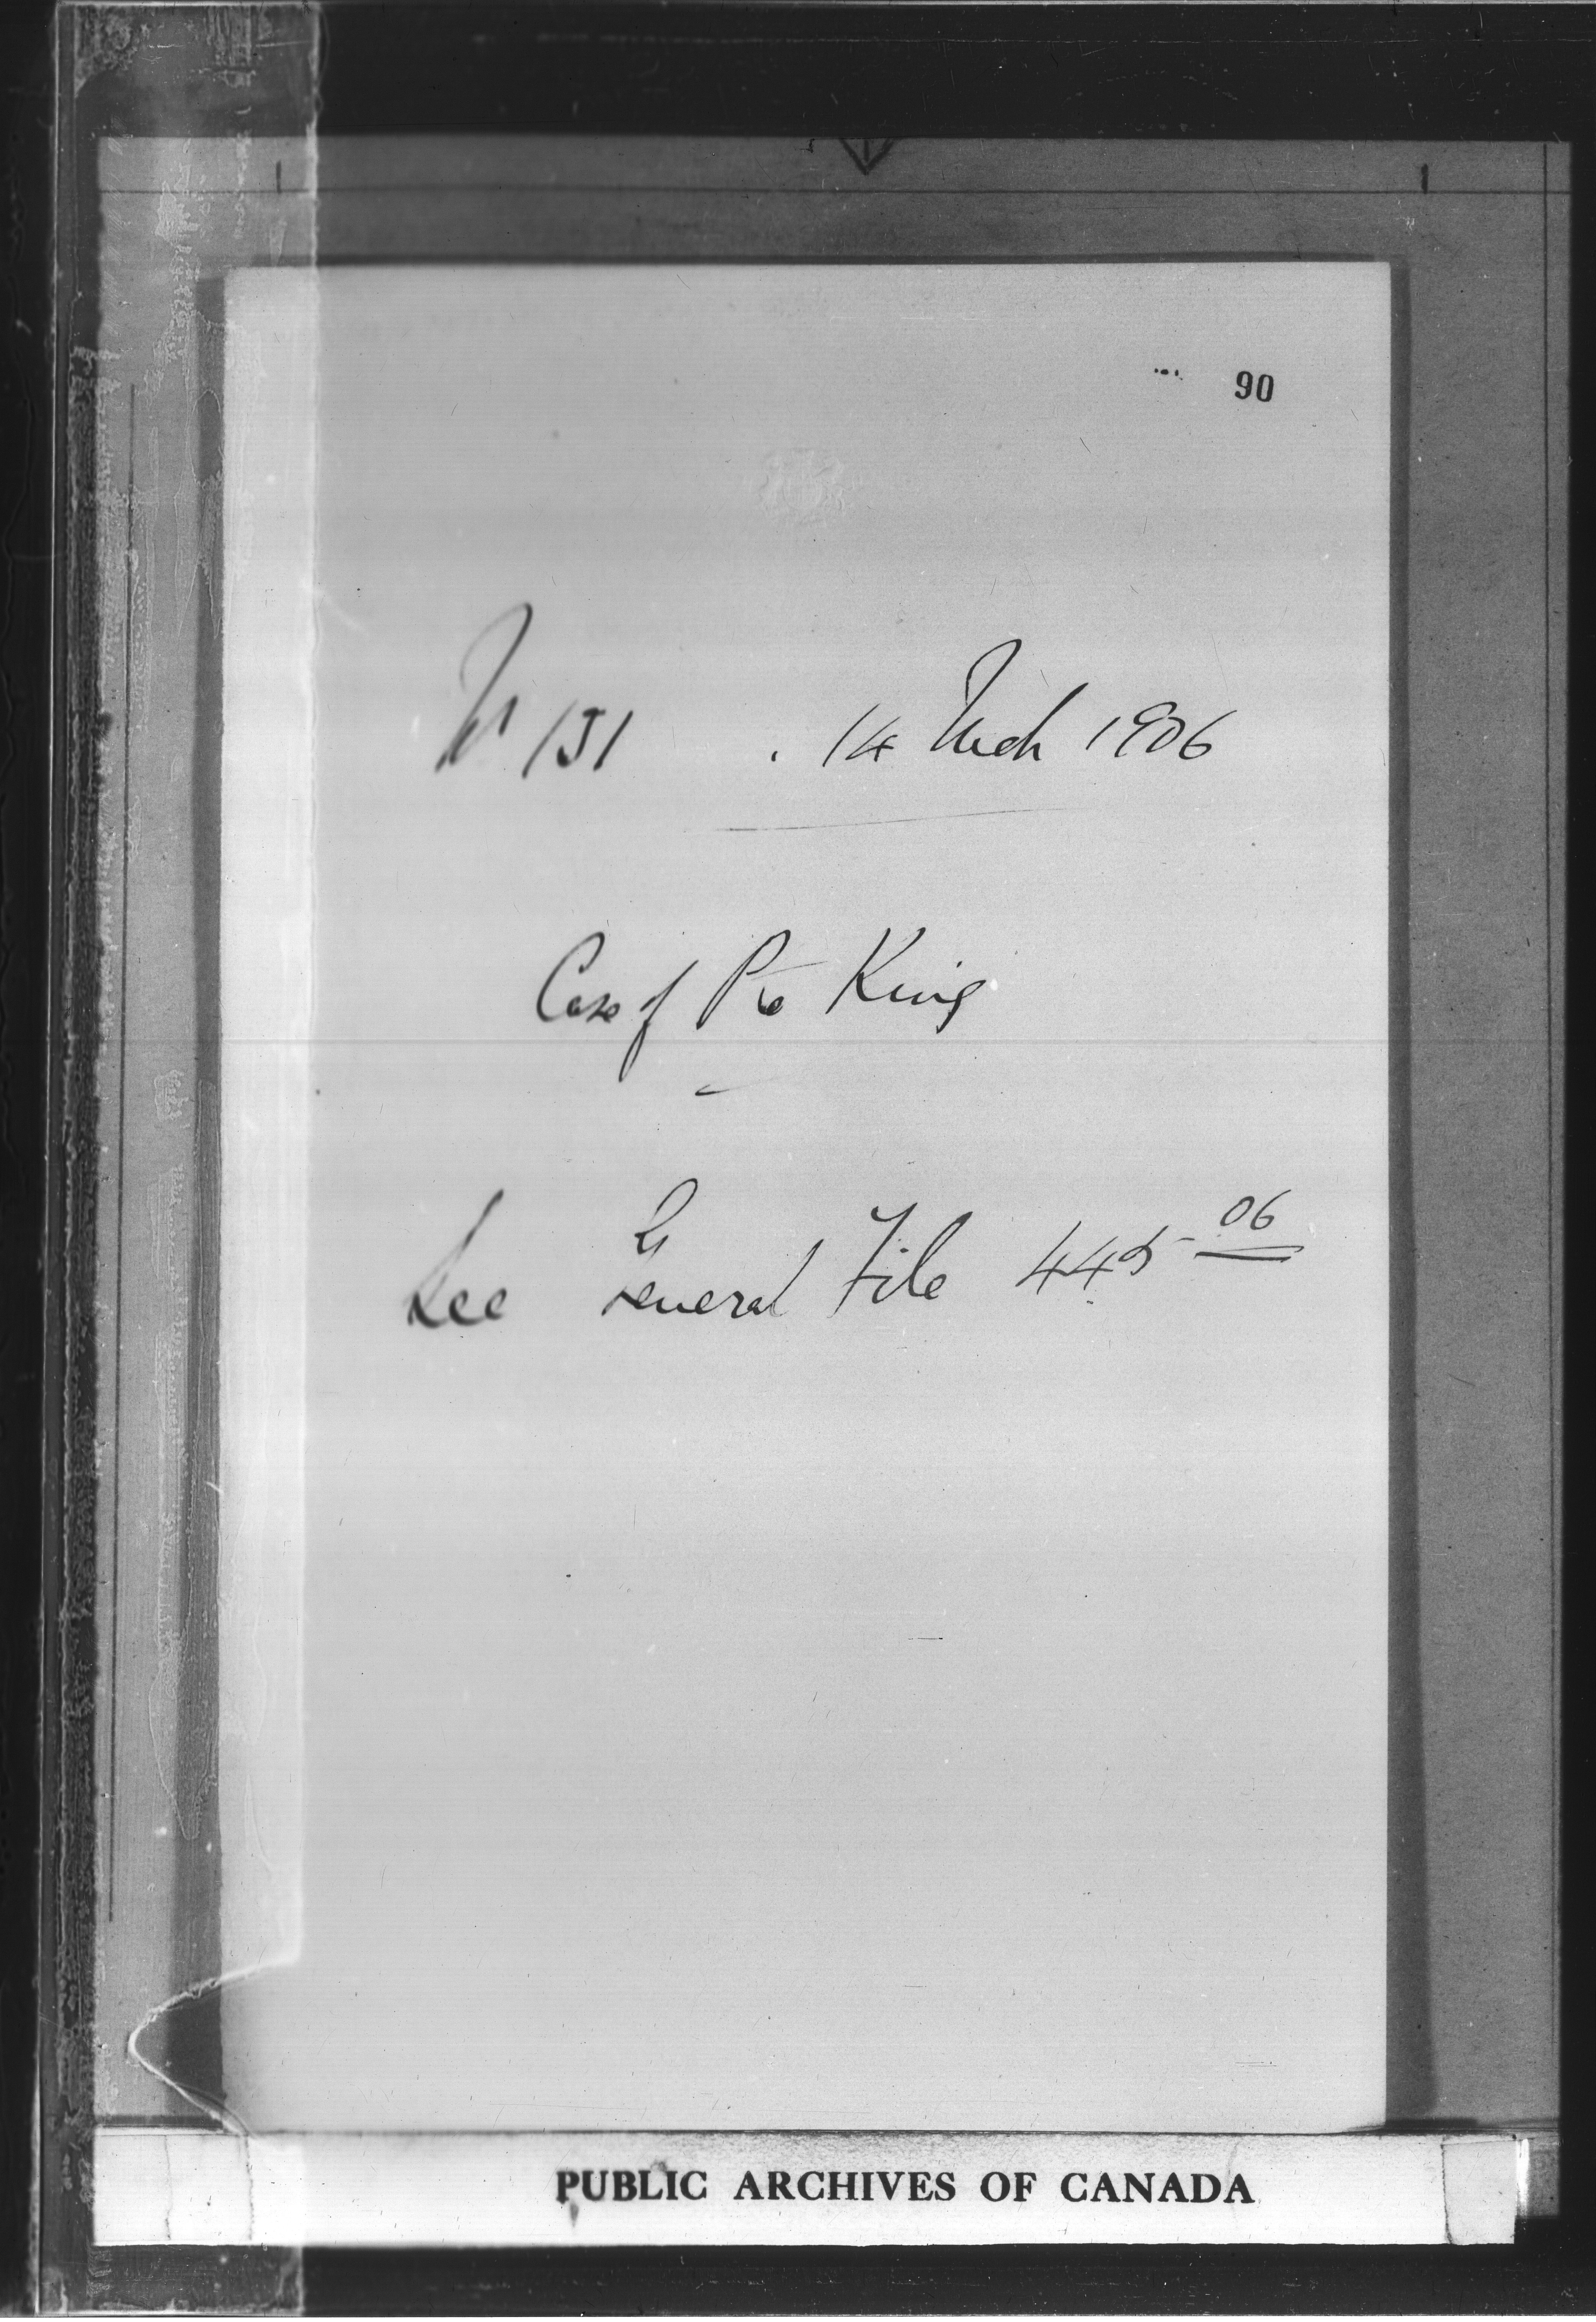 90
No 151 . 14 Mch 1906
Case of Pte King
See General File 445 06
PUBLIC ARCHIVES OF CANADA